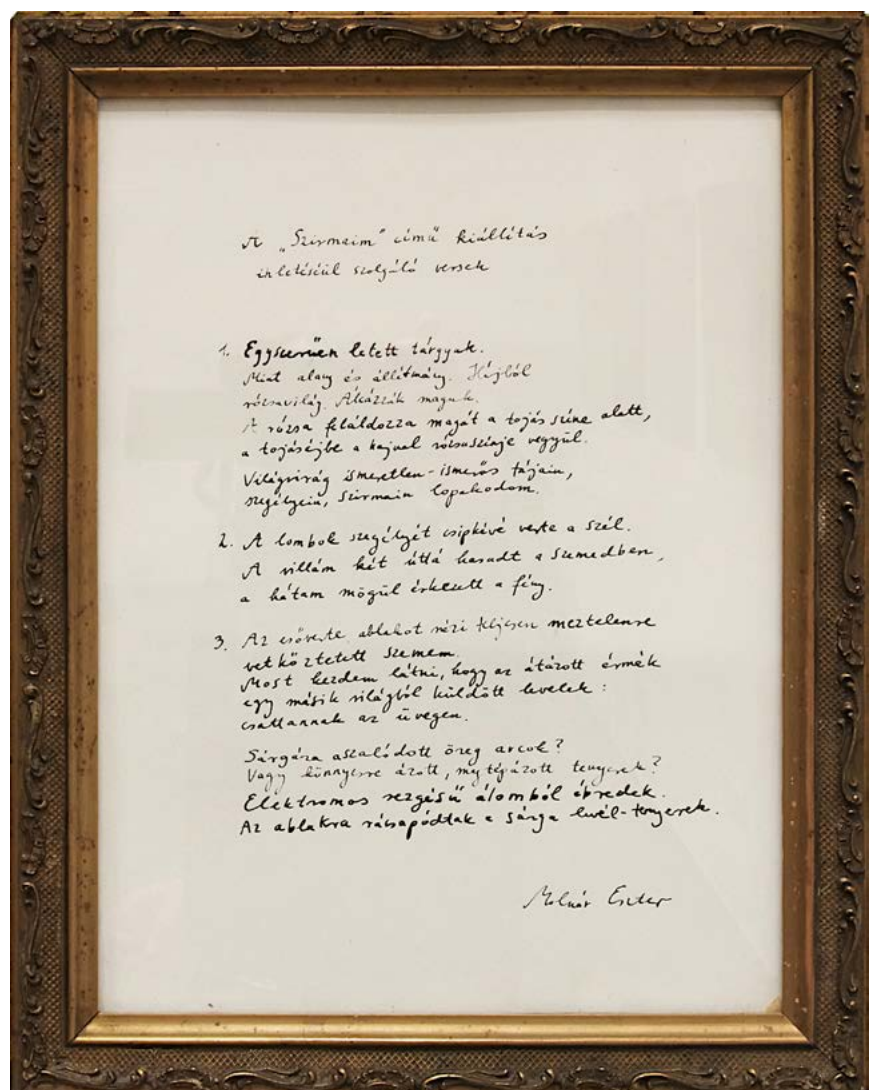 A „Szirmaim” című kiállítás
ihletéséül szolgáló versek
1. Egyszerűen letett tárgyak.
Mint alany és állítmány. Héjból
rózsavilág. Átázzák maguk.
A rózsa feláldozza magát a tojás színe alatt,
a tojáséjbe a hajnal rózsaszínje vegyül.
Világvirág ismeretlen-ismerős tájain,
szegélyein, szirmain lopakodom.
2. A lombok szegélyét csipkévé verte a szél.
A villám két úttá hasadt a szemedben,
a hátam mögül érkezett a fény.
3. Az esőverte ablakot nézi teljesen meztelenre
vetkőztetett szemem.
Most kezdem látni, hogy az átázott érmék
egy másik világból küldött levelek:
csattannak az üvegen.
Sárgára aszalódott öreg arcok?
Vagy könnyesre ázott, megtépázott tenyerek?
Elektromos rezgésű álomból ébredek.
Az ablakra rácsapódtak a sárga levél-tenyerek.
Molnár Eszter